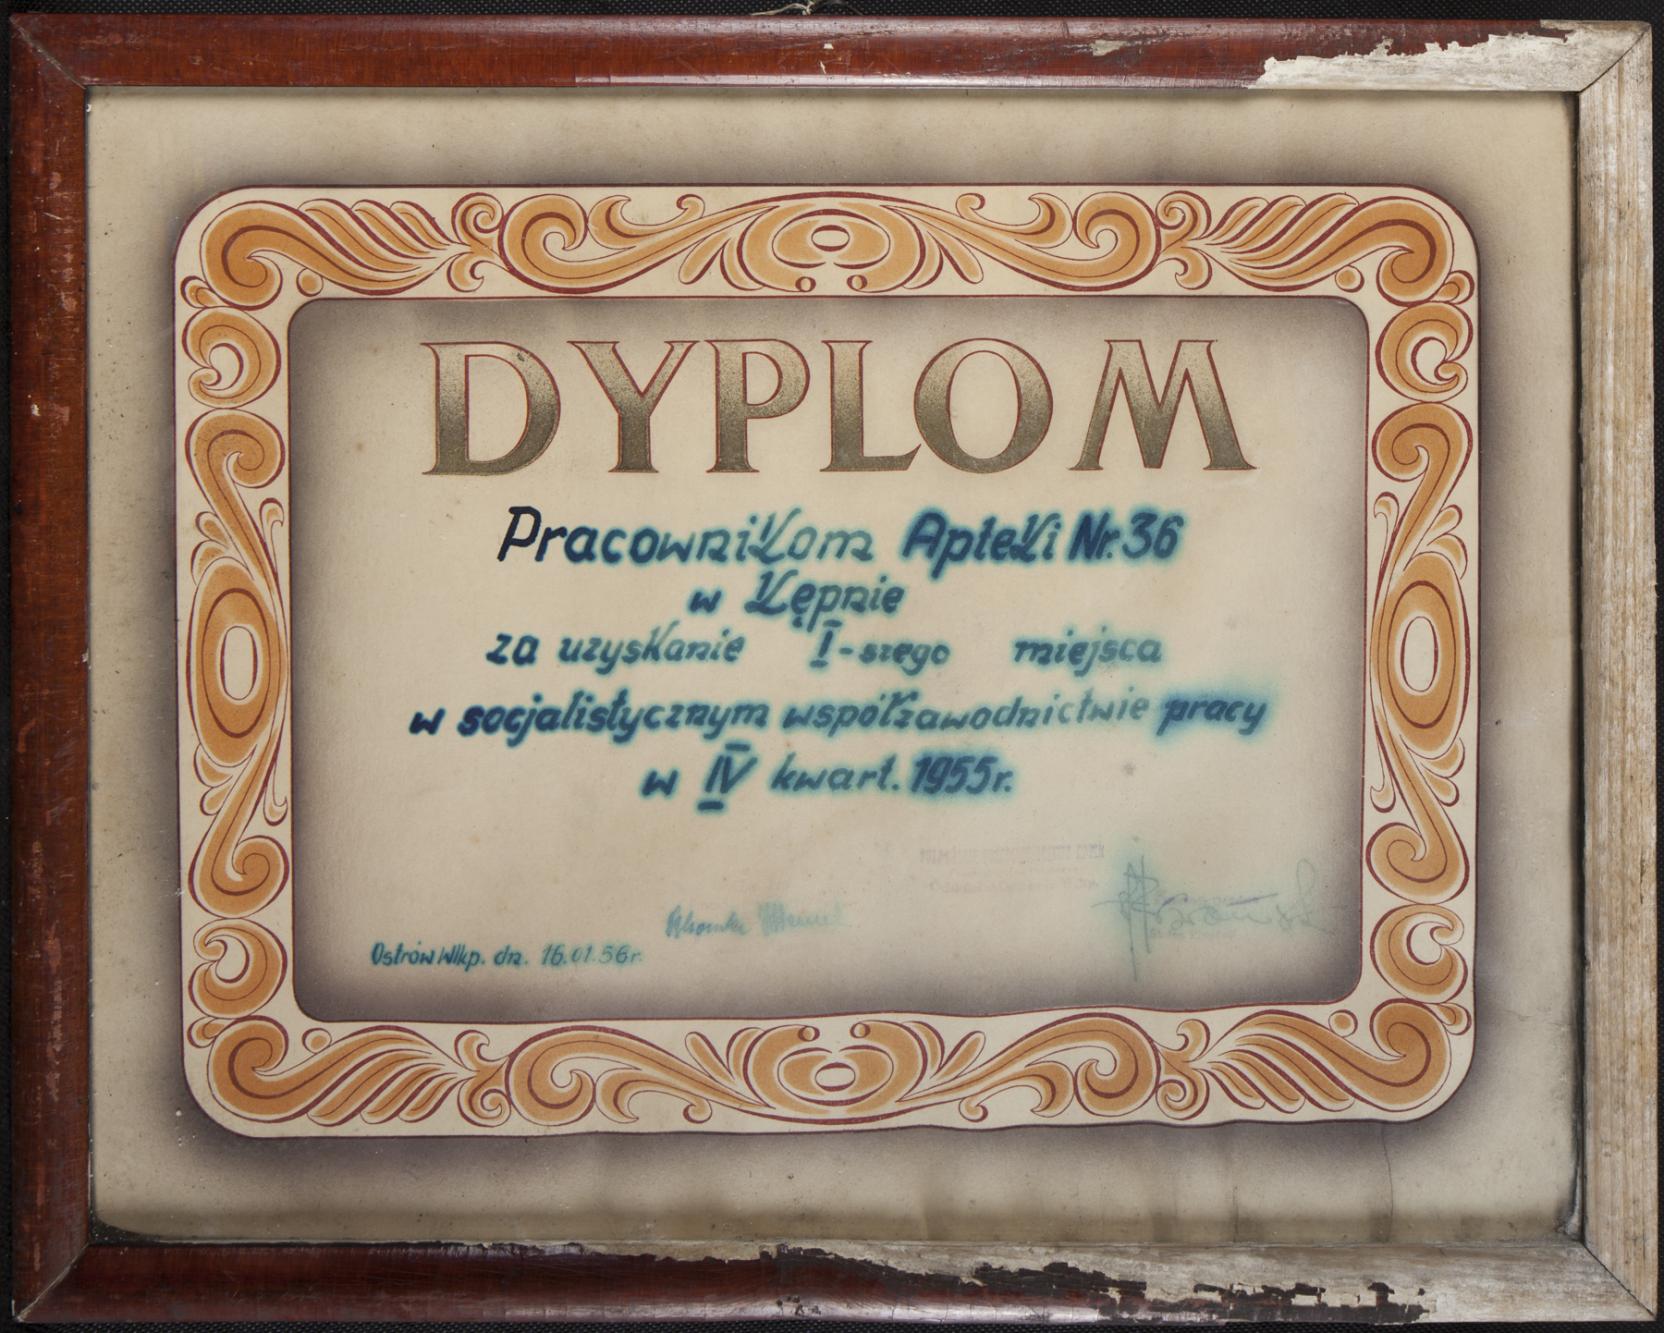 DYPLOM
Pracownikom Apteki Nr. 36
w Kępnie
za uzyskanie I-szego miejsca
w socjalistycznym współzawodnictwie pracy
w IV kwart. 1955r.
Ostrów Wlkp. dn. 16.01.56r.